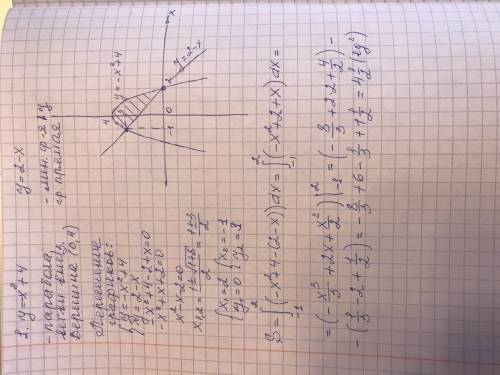 2. y=-x²+4
y=2-x
- парабола,
ветви вниз,
вершина (0,4)
- лин. ф-я
гр. прямая
Пересечение
графиков:
{y=-x²+4
{y=2-x
-x²+4-2+x=0
-x²+x+2=0
x²-x-2=0
x₁,₂=(1±√1+8)/2=(1±3)/2
{x₁=2 {x₂=-1
{y₁=0 {y₂=3
y
4
3
y=-x²+4
-1
0
2
x
y=2-x
S=∫₋₁²(-x²+4-(2-x))dx=∫₋₁²(-x²+2+x)dx=
=(-x³/3+2x+x²/2)|₋₁²=(-8/3+2·2+4/2)-
-(1/3-2+1/2)=-8/3+6-1/3+1 1/2=4 1/2